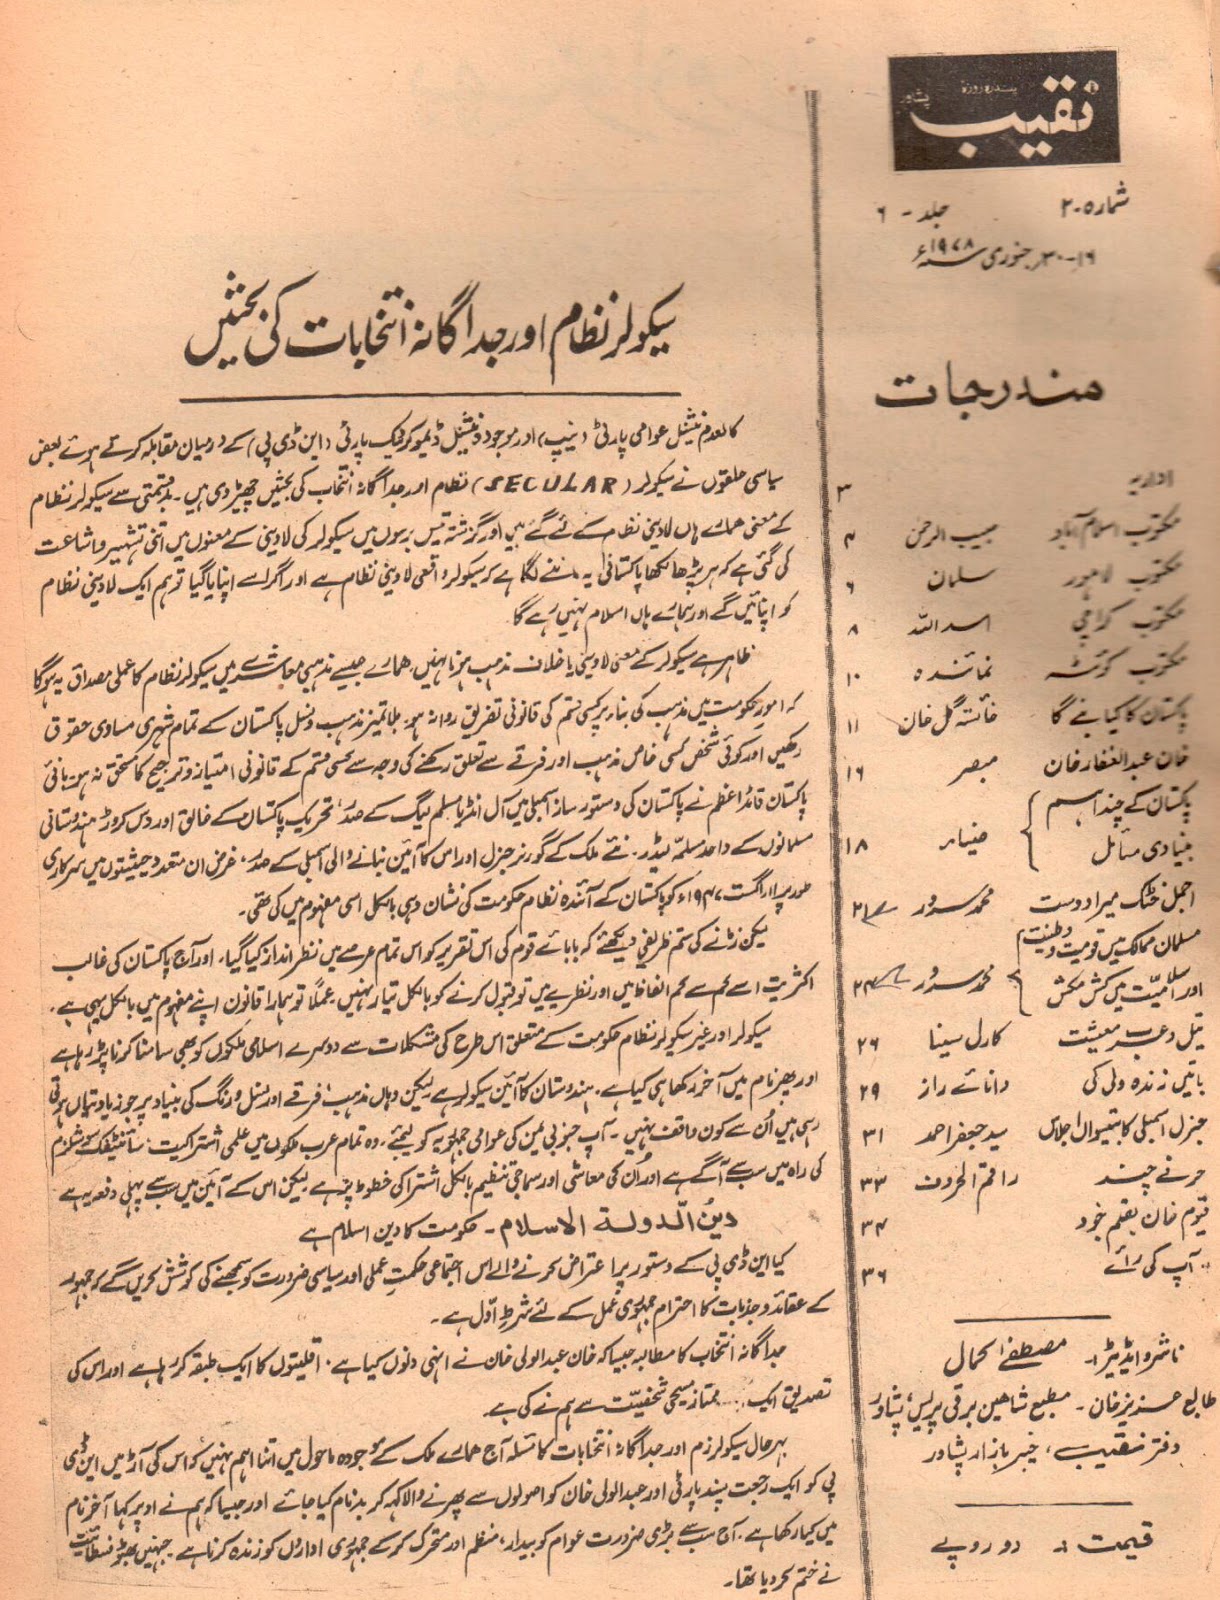 پندرہ روزہ
نقیب
پشاور
شمارہ ۲۰۵ جلد - ۶
۱۶-۳۰ جنوری ۱۹۷۸ء
مندرجات
اداریہ ۳
مکتوب اسلام آباد حبیب الرحمٰن ۴
مکتوب لاہور سلمان ۶
مکتوب کراچی اسد اللہ ۸
مکتوب کوئٹہ نمائندہ ۱۰
پاکستان کا کیا بنے گا خائستہ گل خان ۱۱
خان عبدالغفار خان مبصر ۱۶
پاکستان کے چند اہم
بنیادی مسائل ضیاء ۱۸
اجمل خٹک میرا دوست محمد سرور ۲۱
مسلمان ممالک میں قومیت وطنیت
اور اسلامیت میں کش مکش محمد سرور ۲۴
تیل و عرب معیشت کارل سینا ۲۶
باتیں زندہ ولی کی دانائے راز ۲۹
جنرل اسمبلی کا بتیسواں اجلاس سید جعفر احمد ۳۱
حرفے چند راقم الحروف ۳۳
قیوم خان بقلم خود ۳۴
آپ کی رائے ۳۶
ناشر و ایڈیٹر: مصطفےٰ کمال
طابع عزیز خان - مطبع شاھین برقی پریس، پشاور
دفتر نقیب، خیبر بازار پشاور
قیمت: دو روپے
سیکولر نظام اور جداگانہ انتخابات کی بحثیں
کالعدم نیشنل عوامی پارٹی (نیپ) اور موجودہ نیشنل ڈیموکریٹک پارٹی (این ڈی پی) کے درمیان مقابلہ کرتے ہوئے بعض
سیاسی حلقوں نے سیکولر (SECULAR) نظام اور جداگانہ انتخاب کی بحثیں چھیڑ دی ہیں۔ بدقسمتی سے سیکولر نظام
کے معنی ہمارے ہاں لادینی نظام کے لئے گئے ہیں اور گزشتہ تیس برسوں میں سیکولر کی لادینی کے معنوں میں اتنی تشہیر و اشاعت
کی گئی ہے کہ ہر پڑھا لکھا پاکستانی یہ ماننے لگا ہے کہ سیکولر واقعی لادینی نظام ہے اور اگر اسے اپنایا گیا تو ہم ایک لادینی نظام
کو اپنائیں گے اور ہمارے ہاں اسلام نہیں رہے گا
ظاہر ہے سیکولر کے معنی لادینی یا خلاف مذہب ہونا نہیں۔ ہمارے جیسے مذہبی معاشرے میں سیکولر نظام کا عملی مصداق یہ ہو گا
کہ امور حکومت میں مذہب کی بناء پر کسی قسم کی قانونی تفریق روا نہ ہو۔ بلا تمیز مذہب و نسل پاکستان کے تمام شہری مساوی حقوق
رکھیں اور کوئی شخص کسی خاص مذہب اور فرقے سے تعلق رکھنے کی وجہ سے کسی قسم کے قانونی امتیاز و ترجیح کا مستحق نہ ہو۔ بانی
پاکستان قائد اعظم نے پاکستان کی دستور ساز اسمبلی میں آل انڈیا مسلم لیگ کے صدر، تحریک پاکستان کے خالق اور دس کروڑ ہندوستانی
مسلمانوں کے واحد مسلّمہ لیڈر۔ نئے ملک کے گورنر جنرل اور اس کا آئین بنانے والی اسمبلی کے صدر، غرض ان متعدد حیثیتوں میں سرکاری
طور پر ۱۱ر اگست ۱۹۴۷ء کو پاکستان کے آئندہ نظام حکومت کی نشان دہی بالکل اسی مفہوم میں کی تھی۔
لیکن زمانے کی ستم ظریفی دیکھئے کہ بابائے قوم کی اس تقریر کو اس تمام عرصے میں نظر انداز کیا گیا۔ اور آج پاکستان کی غالب
اکثریت اسے کم سے کم الفاظ میں اور نظریے میں تو قبول کرنے کو بالکل تیار نہیں۔ عملاً تو ہمارا قانون اپنے مفہوم میں بالکل یہی ہے۔
سیکولر اور غیر سیکولر نظام حکومت کے متعلق اس طرح کی مشکلات سے دوسرے اسلامی ملکوں کو بھی سامنا کرنا پڑ رہا ہے
اور پھر نام میں آخر رکھا ہی کیا ہے۔ ہندوستان کا آئین سیکولر ہے لیکن وہاں مذہب، فرقے اور نسل و رنگ کی بنیاد پر جو زیادتیاں ہوتی
رہی ہیں اُن سے کون واقف نہیں۔ آپ جنوبی یمن کی عوامی جمہوریہ کو لیجئے۔ وہ تمام عرب ملکوں میں علمی اشتراکیت: سائنٹیفک سوشلزم
کی راہ میں سب سے آگے ہے اور اُن کی معاشی اور سماجی تنظیم بالکل اشتراکی خطوط پر ہے لیکن اس کے آئین میں سب سے پہلی دفعہ یہ ہے
دینُ الدّولۃ الاسلام - حکومت کا دین اسلام ہے
کیا این ڈی پی کے دستور پر اعتراض کرنے والے اس اجتماعی حکمت عملی اور سیاسی ضرورت کو سمجھنے کی کوشش کریں گے کہ جمہور
کے عقائد و جذبات کا احترام جمہوری عمل کے لئے شرطِ اوّل ہے۔
جداگانہ انتخاب کا مطالبہ جیسا کہ خان عبدالولی خان نے انہی دنوں کہا ہے۔ اقلیتوں کا ایک طبقہ کر رہا ہے اور اس کی
تصدیق ایک ..... ممتاز مسیحی شخصیّت سے ہم نے کی ہے
بہرحال سیکولرزم اور جداگانہ انتخابات کا مسئلہ آج ہمارے ملک کے موجودہ ماحول میں اتنا اہم نہیں کہ اس کی آڑ میں این ڈی
پی کو ایک رجعت پسند پارٹی اور عبدالولی خان کو اصولوں سے پھرنے والا کہہ کر بدنام کیا جائے اور جیسا کہ ہم نے اوپر کہا آخر نام
میں کیا رکھا ہے۔ آج سب سے بڑی ضرورت عوام کو بیدار، منظم اور متحرک کر کے جمہوری اداروں کو زندہ کرنا ہے۔ جنہیں بھٹو فسطائیت
نے ختم کر دیا تھا۔